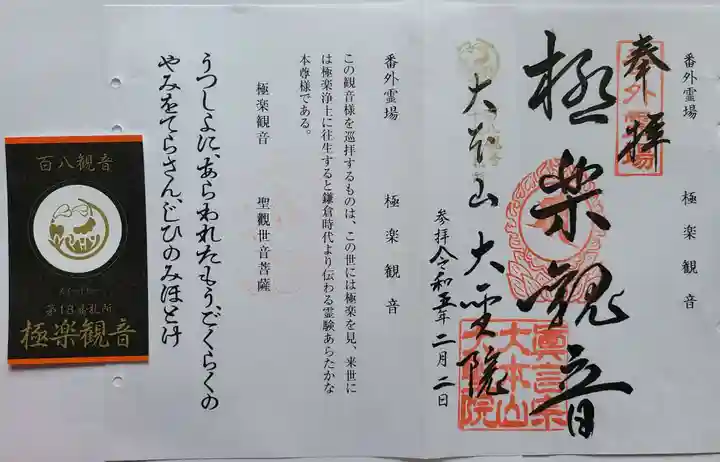 番外霊場　極楽観音
奉拝
番外霊場
極楽観音
大本山大聖院
参拝令和五年二月二日
真言宗
大本山
大聖院
番外霊場　極楽観音
この観音様を巡拝するものは、この世には極楽を見、来世に
は極楽浄土に往生すると鎌倉時代より伝わる霊験あらたかな
本尊様である。
極楽観音　聖観世音菩薩
うつしよに、あらわれたもう、ごくらくの
やみをてらさん、じひのみほとけ
百八観音
第18番札所
極楽観音